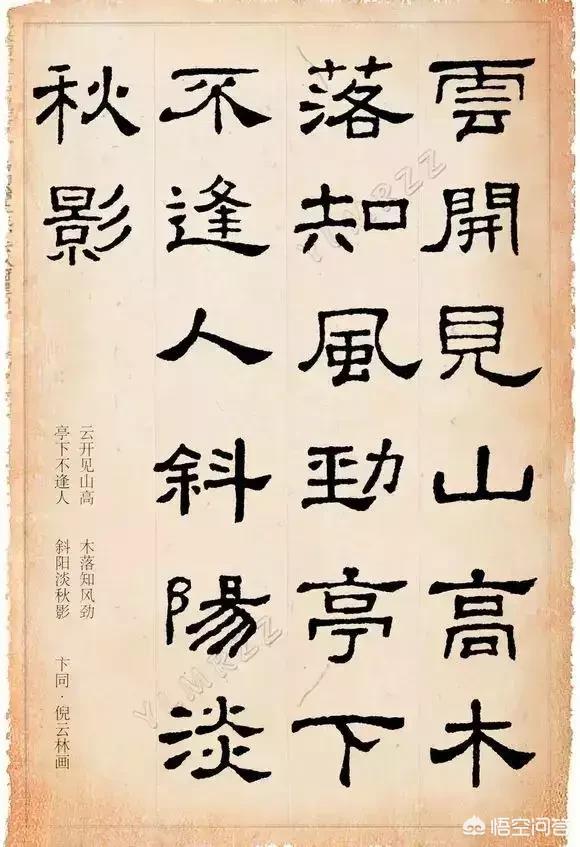 雲開見山高木
落知風勁亭下
不逢人斜陽淡
秋影
云开见山高 木落知风劲
亭下不逢人 斜阳淡秋影 卞同·倪云林画
YLMRZZ
YLMRZZ
悟空问答